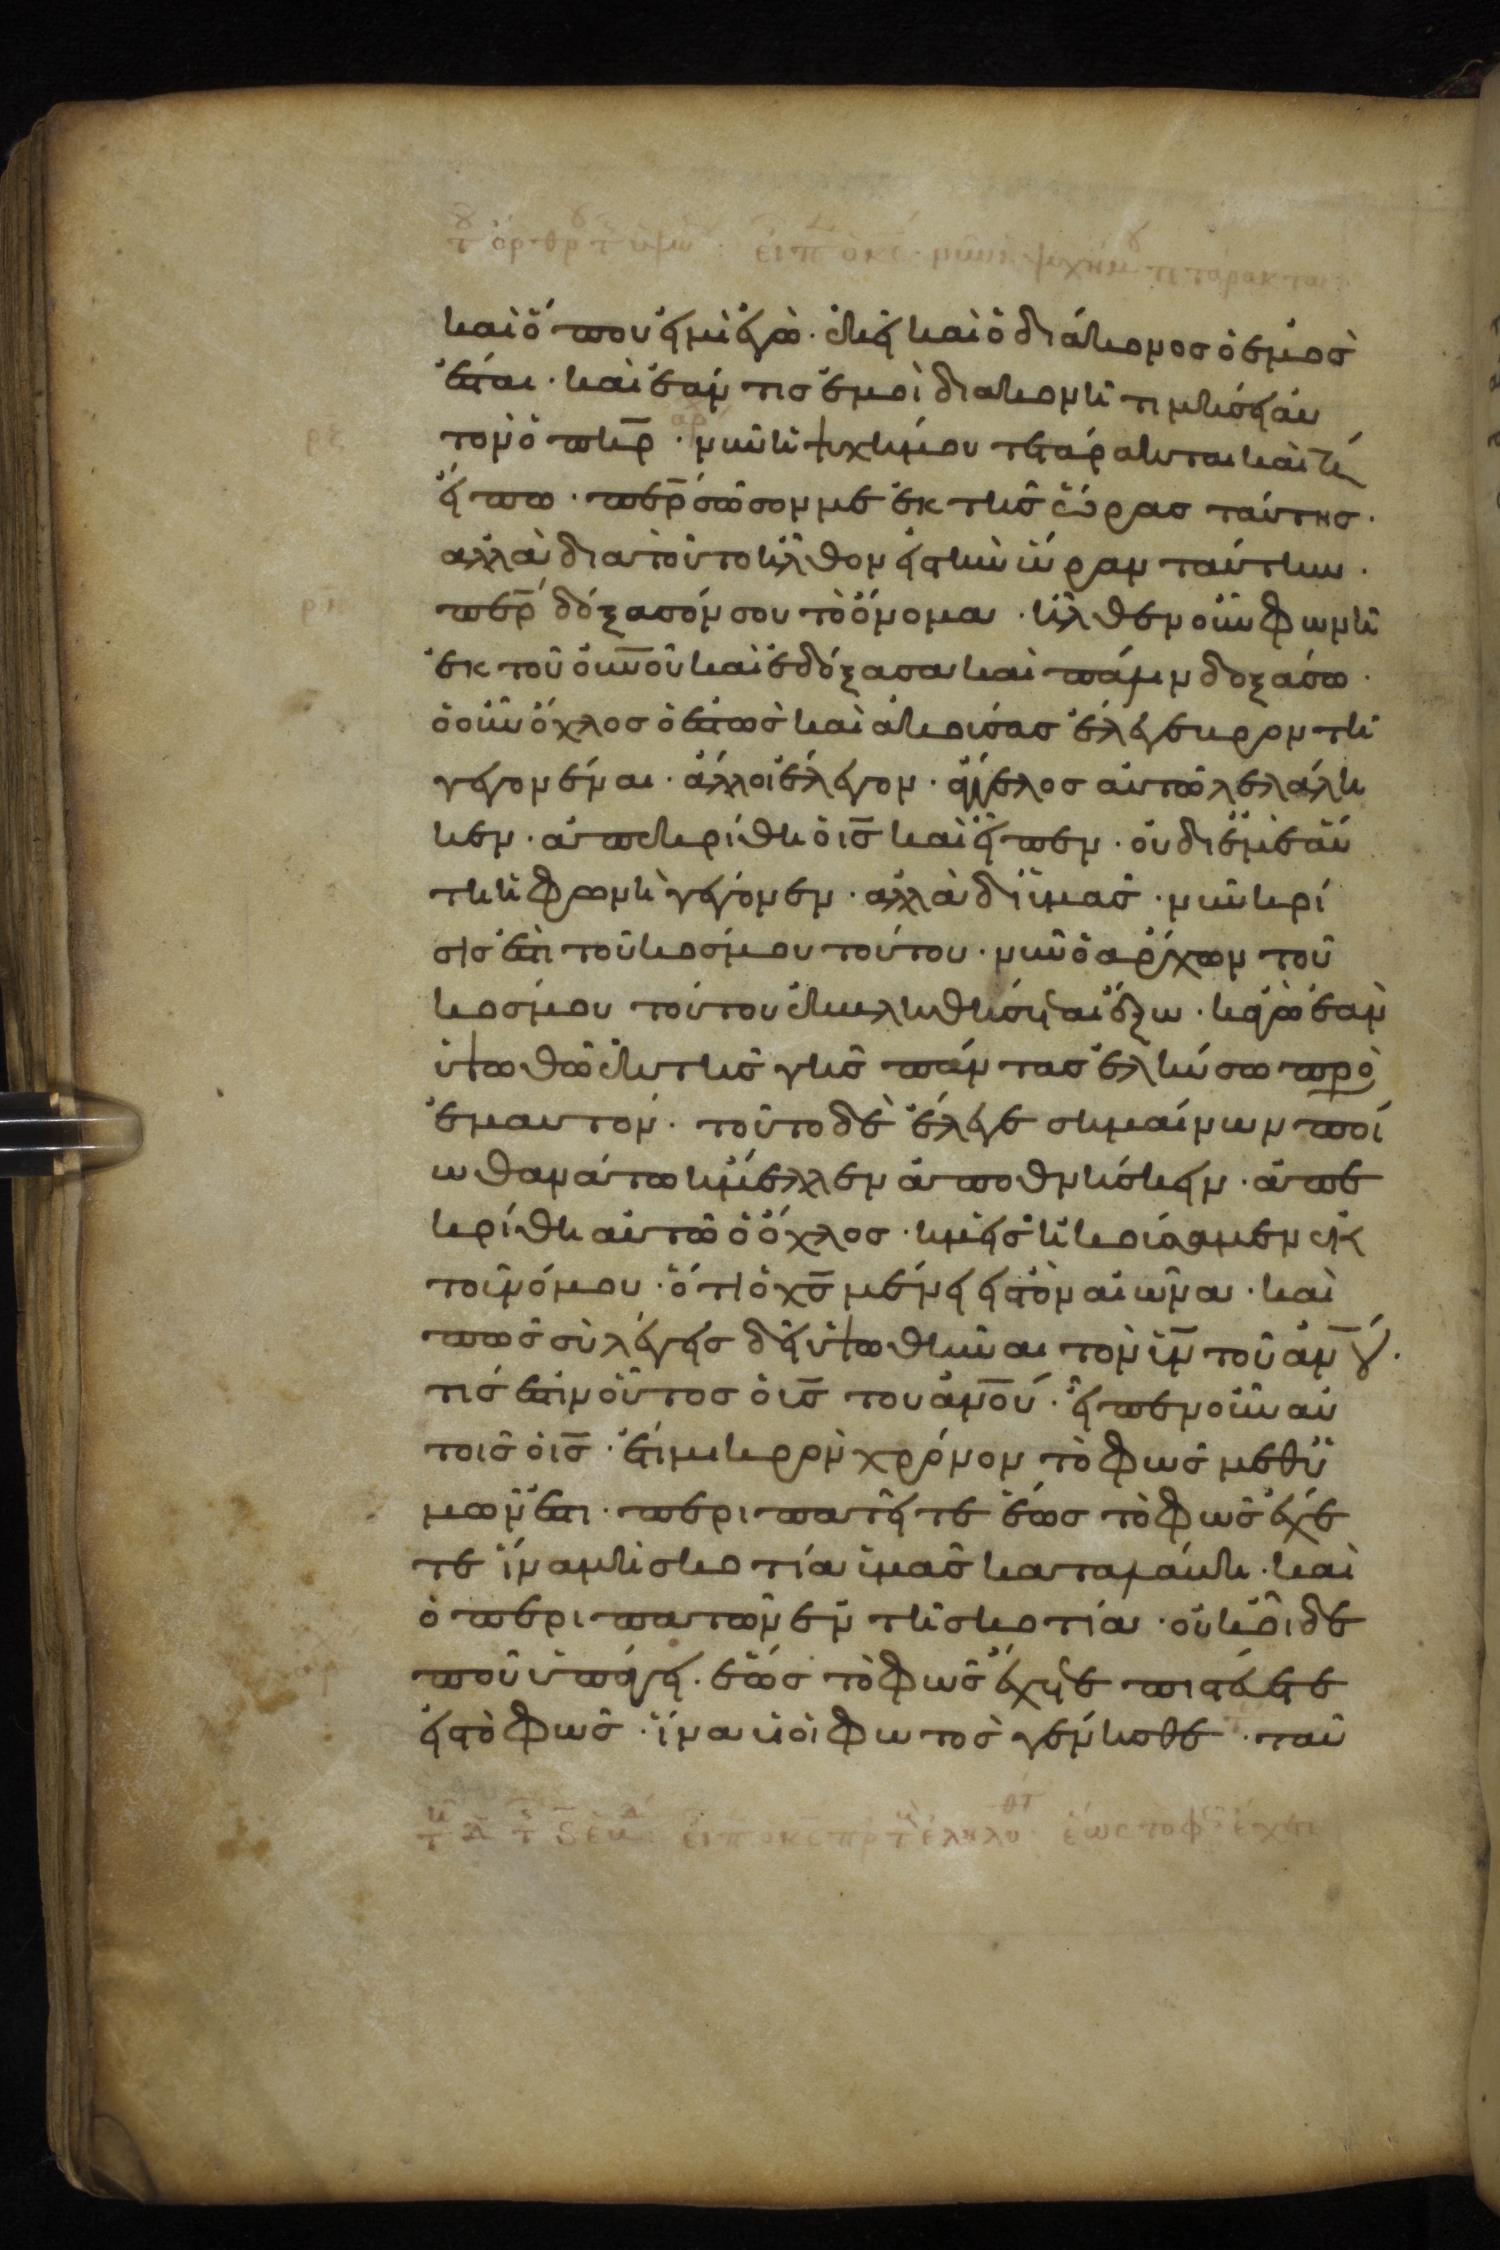 καὶ ὅπου εἰμὶ ἐγὼ · ἐκεῖ καὶ ὁ διάκονος ὁ ἐμὸς
ἔσται · καὶ ἐάν τις ἐμοὶ διακονῇ τιμήσει αὐ
τὸν ὁ πηρ · νῦν ἡ ψυχή μου τετάρακται καὶ τί
εἴπω · περ σῶσον με ἐκ τῆς ὥρας ταύτης ·
ἀλλὰ διὰ τοῦτο ἦλθον εἰς τὴν ὥραν ταύτην ·
περ δόξασόν σου τὸ ὄνομα · ἦλθεν οὖν φωνὴ
ἐκ τοῦ οὐνοῦ καὶ ἐδόξασα καὶ πάλιν δοξάσω ·
ὁ οὖν ὄχλος ὁ ἑστὼς καὶ ἀκούσας ἔλεγεν βροντὴ
γεγονέναι · ἄλλοι ἔλεγον · ἄγγελος αὐτῷ λελάλη
κεν · ἀπεκρίθη ὁ ις καὶ εἶπεν · οὐ δι ἐμὲ αὕ
τη ἡ φωνὴ γέγονεν · ἀλλὰ δι ὑμᾶς · νῦν κρί
σις ἐστὶ τοῦ κόσμου τούτου · νῦν ὁ ἄρχων τοῦ
κόσμου τούτου ἐκβληθήσεται ἔξω · κἀγὼ ἐὰν
ὑψωθῶ ἐκ τῆς γῆς πάντας ἑλκύσω πρὸ
ἐμαυτόν · τοῦτο δὲ ἔλεγε σημαίνων ποί
ω θανάτω ἤμελλεν ἀποθνήσκειν · ἀπε
κρίθη αὐτῷ ὁ ὄχλος · ἡμεῖς ἠκούσαμεν ἐκ
τοῦ νόμου · ὅτι ὁ χς μένει εἰς τὸν αἰῶνα · καὶ
πῶς σὺ λέγεις δεῖ ὑψωθῆναι τὸν υν τοῦ ανου ·
τίς ἐστιν οὗτος ὁ υς του ανου · εἶπεν οὖν αὐ
τοῖς ὁ ις · ἔτι μικρὸν χρόνον τὸ φῶς μεθ ὑ
μῶν ἐστι · περιπατεῖτε ἕως τὸ φῶς ἔχε
τε ἵνα μὴ σκοτία ὑμᾶς καταλάβη · καὶ
ὁ περιπατῶν ἐν τῇ σκοτία · οὐκ οἶδε
ποῦ ὑπάγει · ἕως τὸ φῶς ἔχετε πιστεύετε
εἰς τὸ φῶς · ἵνα υἱοὶ φωτὸς γένησθε · ταῦ